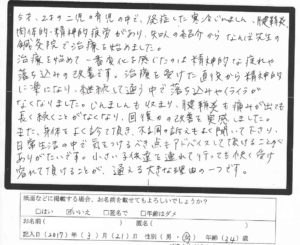 5才、2才の二児の育児の中で、発症した寒冷じんましん、腱鞘炎
肉体的・精神的疲労があり、知人の紹介から なんば先生の
鍼灸院で治療を始めました。
治療を始めて一番変化を感じたのは精神的な疲れや
落ち込みの改善です。治療を受けた直後から精神的
に楽になり、継続して通う中で落ち込みやイライラが
なくなりました。じんましんも収まり、腱鞘炎も痛みが出ても
長く続くことがなくなり、回復力の改善も実感しました。
また、身体をよく診て頂き、不調の訴えもよく聞いて下さり
日常生活の中で気をつけるべき点もアドバイスして頂けることが
ありがたいです。小さい子供達を連れて行っても快く受け
容れて頂けることが、通える大きな理由の一つです。
紙面などに掲載する場合、お名前を載せてもよろしいでしょうか？
□はい □いいえ □匿名で □年齢はダメ
お名前( ) 匿名( )
記入日(2017)年(3)月(21)日 性別(男・女) 年齢(34)歳